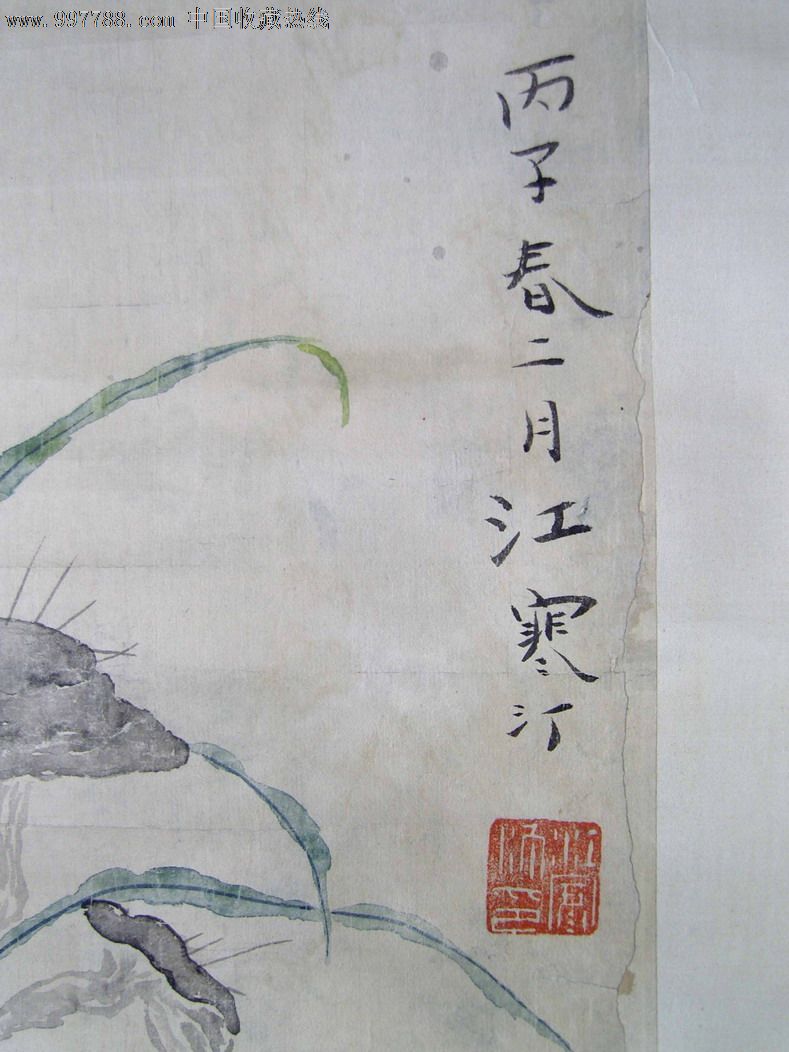 www.997788.com 中国收藏热线
丙子春二月江寒汀